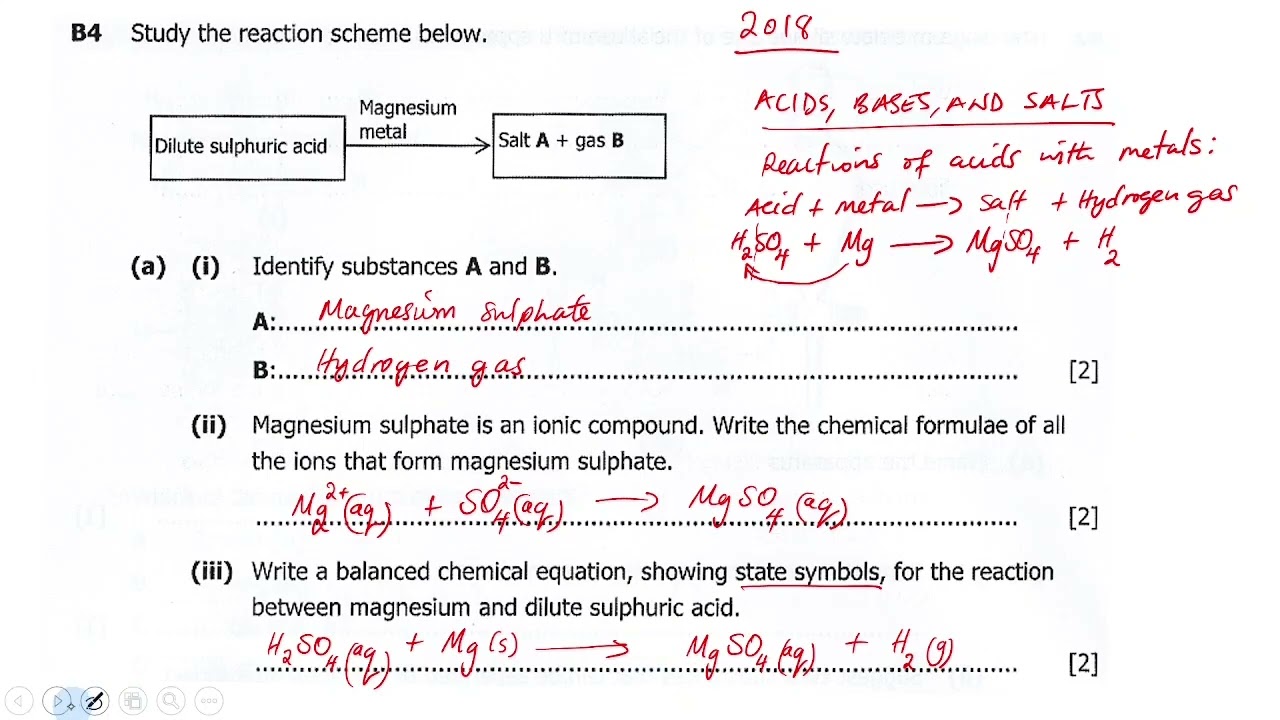 B4 Study the reaction scheme below.
2018
ACIDS, BASES, AND SALTS
Reactions of acids with metals:
Acid + metal → salt + Hydrogen gas
H₂SO₄ + Mg → MgSO₄ + H₂
Magnesium
metal
Dilute sulphuric acid
Salt A + gas B
(a) (i) Identify substances A and B.
A:..... Magnesium sulphate
B:..... Hydrogen gas [2]
(ii) Magnesium sulphate is an ionic compound. Write the chemical formulae of all
the ions that form magnesium sulphate.
Mg²⁺(aq) + SO₄²⁻(aq) → MgSO₄(aq) [2]
(iii) Write a balanced chemical equation, showing state symbols, for the reaction
between magnesium and dilute sulphuric acid.
H₂SO₄(aq) + Mg(s) → MgSO₄(aq) + H₂(g) [2]